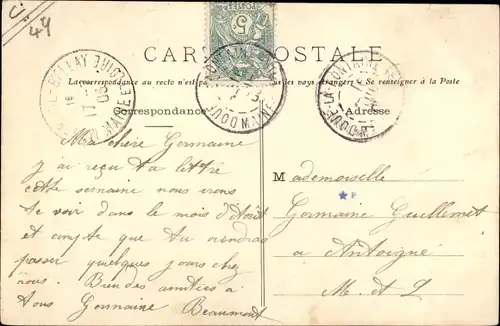 44
CARTE POSTALE
La correspondance au recto n'est pas des pays étrangers Se renseigner à la Poste
Correspondance
Adresse
5
POSTES
MAINE
Ma chère Germaine
j ai reçu ta lettre
cette semaine nous irons
te voir dans le mois d'Août
et compte que tu viendras
passer quelques jours chez
nous. Bien des amitiés à
tous Germaine Beaumont
Mademoiselle
P
Germaine Guillemet
a Antoigné
M. et L